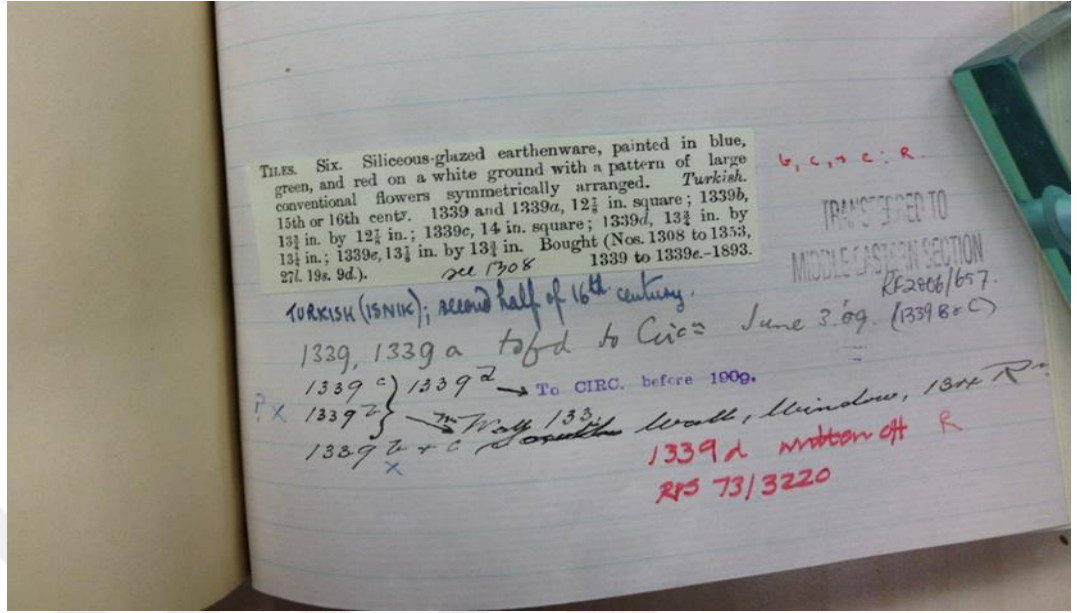 TILES. Six. Siliceous-glazed earthenware, painted in blue,
green, and red on a white ground with a pattern of large
conventional flowers symmetrically arranged. Turkish.
15th or 16th centy. 1339 and 1339a, 12⅞ in. square; 1339b,
13¾ in. by 12⅞ in.; 1339c, 14 in. square; 1339d, 13¾ in. by
13¼ in.; 1339e, 13⅞ in. by 13¾ in. Bought (Nos. 1308 to 1353,
27l. 19s. 9d.). see 1308 1339 to 1339e.-1893.
b, c, + e: R.
TRANSFERRED TO
MIDDLE EASTERN SECTION
RF2006/657.
(1339 B & C)
TURKISH (ISNIK); second half of 16th century.
1339, 1339a tsfd to Circn June 3.09.
1339c) 1339d → To CIRC. before 1909.
? X 1339b → Wall 133.
1339b + c Wall, Window, R
X
1339d written off R
RPS 73/3220